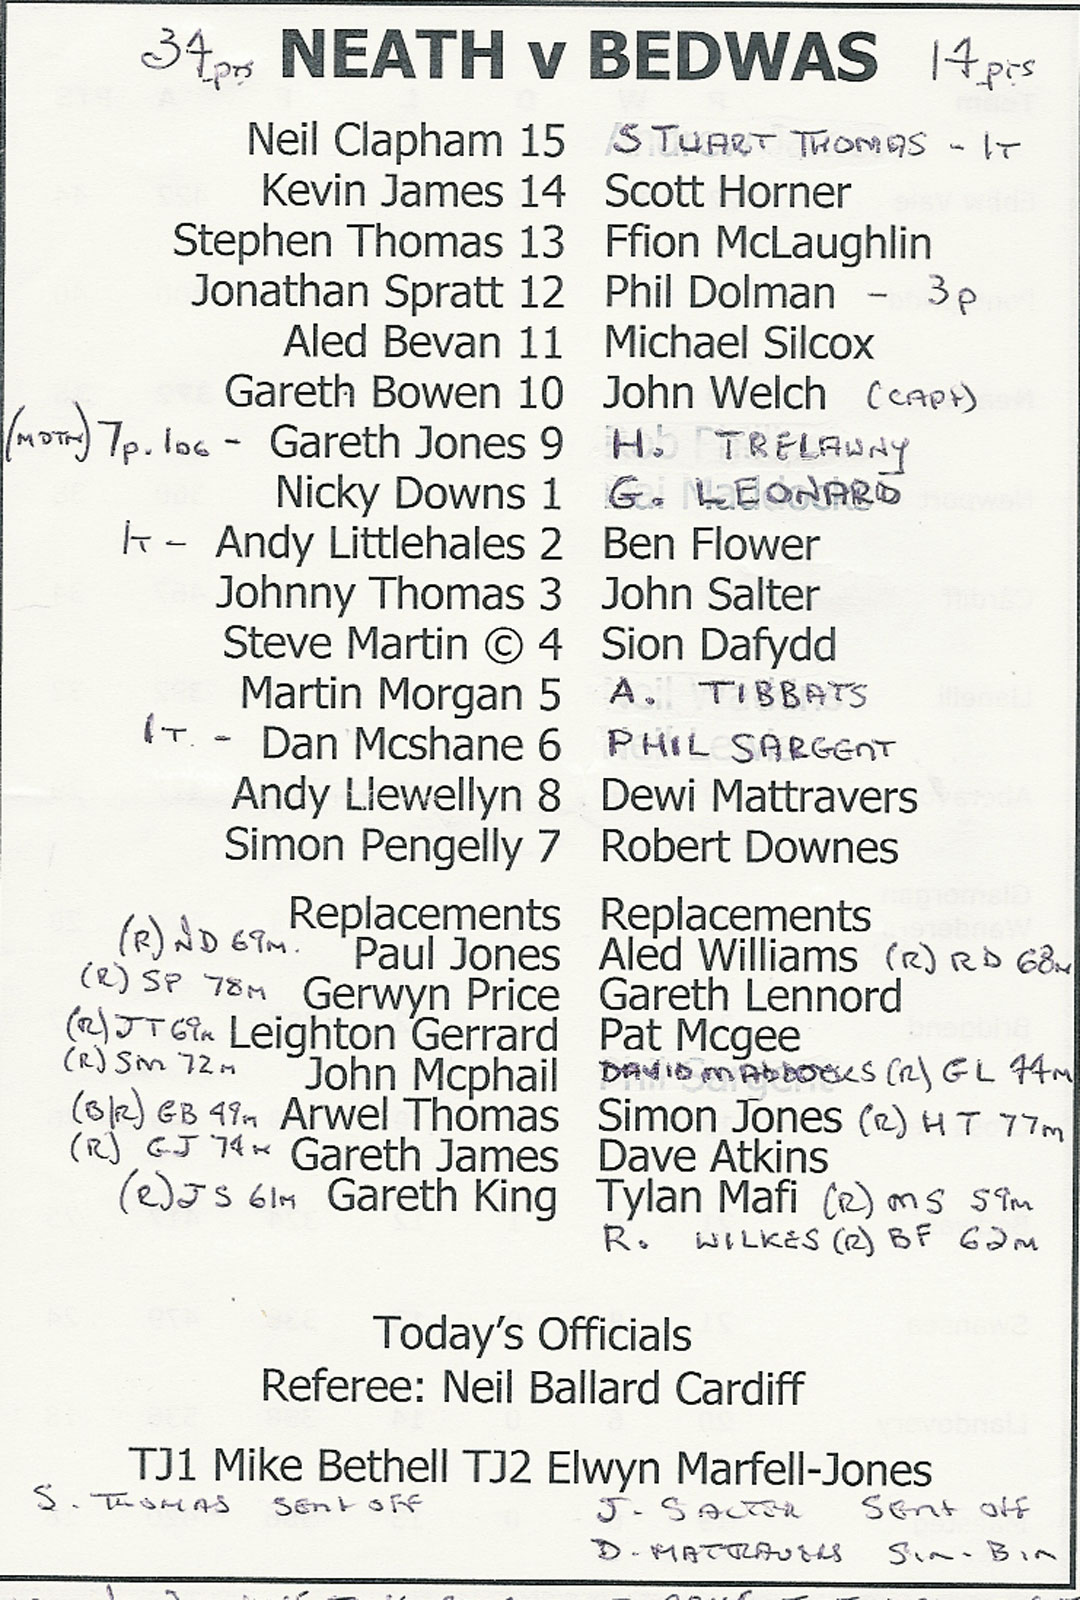 34pts NEATH v BEDWAS 14pts
Neil Clapham 15 STUART THOMAS - 1T
Kevin James 14 Scott Horner
Stephen Thomas 13 Ffion McLaughlin
Jonathan Spratt 12 Phil Dolman - 3p
Aled Bevan 11 Michael Silcox
Gareth Bowen 10 John Welch (CAPT)
(MOTM) 7p. 1DG - Gareth Jones 9 H. TRELAWNY
Nicky Downs 1 G. LEONARD
1T - Andy Littlehales 2 Ben Flower
Johnny Thomas 3 John Salter
Steve Martin © 4 Sion Dafydd
Martin Morgan 5 A. TIBBATS
1T. - Dan Mcshane 6 PHIL SARGENT
Andy Llewellyn 8 Dewi Mattravers
Simon Pengelly 7 Robert Downes
Replacements Replacements
(R) ND 69m. Paul Jones Aled Williams (R) RD 68m
(R) SP 78m Gerwyn Price Gareth Lennord
(R) JT 69m Leighton Gerrard Pat Mcgee
(R) SM 72m John Mcphail DAVID MADDOCKS (R) GL 44m
(B/R) GB 49m Arwel Thomas Simon Jones (R) HT 77m
(R) GJ 74m Gareth James Dave Atkins
(R) JS 61m Gareth King Tylan Mafi (R) MS 59m
R. WILKES (R) BF 62m
Today's Officials
Referee: Neil Ballard Cardiff
TJ1 Mike Bethell TJ2 Elwyn Marfell-Jones
S. THOMAS SENT OFF J. SALTER SENT OFF
D. MATTRAVERS SIN-BIN